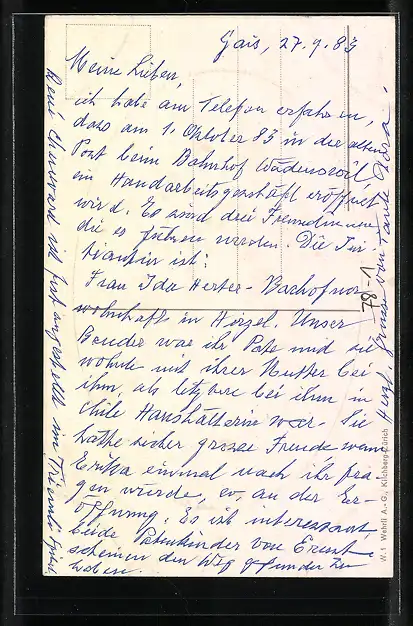 Gais, 27.9.83
Meine Lieben,
ich habe am Telefon erfahren,
dass am 1. Oktober 83 in der alten
Post beim Bahnhof Wädenswil
ein Handarbeitsgeschäft eröffnet
wird. Es sind drei Freundinnen
die es führen werden. Die Ini-
tiantin ist:
Frau Ida Herter-Bachofner
wohnhaft in Hirzel. Unser
Bruder war ihr Pate und sie
wohnte mit ihrer Mutter bei
ihm, als letztere bei ihm in
Haushälterin war. Sie
hätte sicher grosse Freude wenn
Erika einmal nach ihr fra-
gen würde, ev. an der Er-
öffnung. Es ist interessant,
beide Patenkinder von Ernst
scheinen den Weg gefunden zu
haben.
Herzl. Grüsse von Tante Dora.
René ist fest angestellt im
78-1
W. 1 Wehrli A.-G., Kilchberg-Zürich